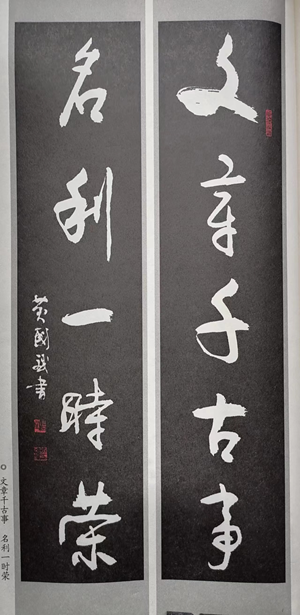 文章千古事
名利一時荣
黄国武書
文章千古事 名利一时荣